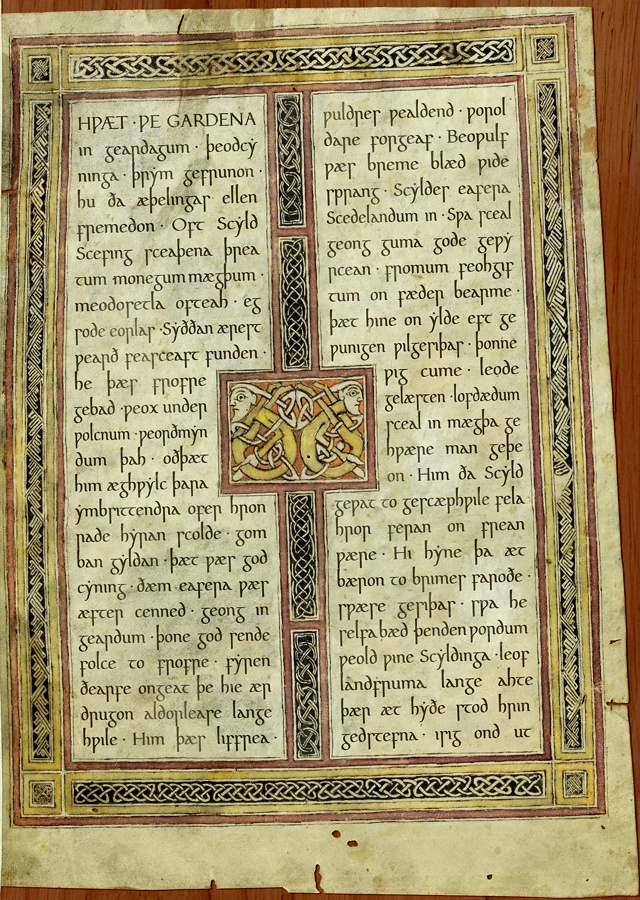 HǷÆT · ǷE GARDENA
in geardagum · þeodcẏ
ninga · þrẏm gefrunon ·
hu ða æþelingas ellen
fremedon · Oft Scẏld
Scefing sceaþena þrea
tum monegum mægþum ·
meodosetla ofteah · eg
sode eorlas · Sẏððan ærest
ƿearð feasceaft funden ·
he þæs frofre
gebad · ƿeox under
ƿolcnum · ƿeorðmẏn
dum þah · oðþæt
him æghƿẏlc þara
ẏmbsittendra ofer hron
rade hẏran scolde · gom
ban gẏldan · þæt ƿæs god
cẏning · ðæm eafera ƿæs
æfter cenned · geong in
geardum · þone god sende
folce to frofre · fẏren
ðearfe ongeat þe hie ær
drugon aldorlease lange
hƿile · Him þæs liffrea ·
ƿuldres ƿealdend · ƿorol
dare forgeaf · Beoƿulf
ƿæs breme blæd ƿide
sprang · Scẏldes eafera
Scedelandum in · Sƿa sceal
geong guma gode geƿẏ
rcean · fromum feohgif
tum on fæder bearme ·
þæt hine on ẏlde eft ge
ƿunigen ƿilgesiþas · þonne
ƿig cume · leode
gelæsten · lofdædum
sceal in mægþa ge
hƿære man geþe
on · Him ða Scẏld
geƿat to gescæphƿile fela
hror feran on frean
ƿære · Hi hẏne þa æt
bæron to brimes faroðe ·
sƿæse gesiþas · sƿa he
selfa bæd þenden ƿordum
ƿeold ƿine Scẏldinga · leof
landfruma lange ahte
þær æt hẏðe stod hrin
gedstefna · isig ond ut